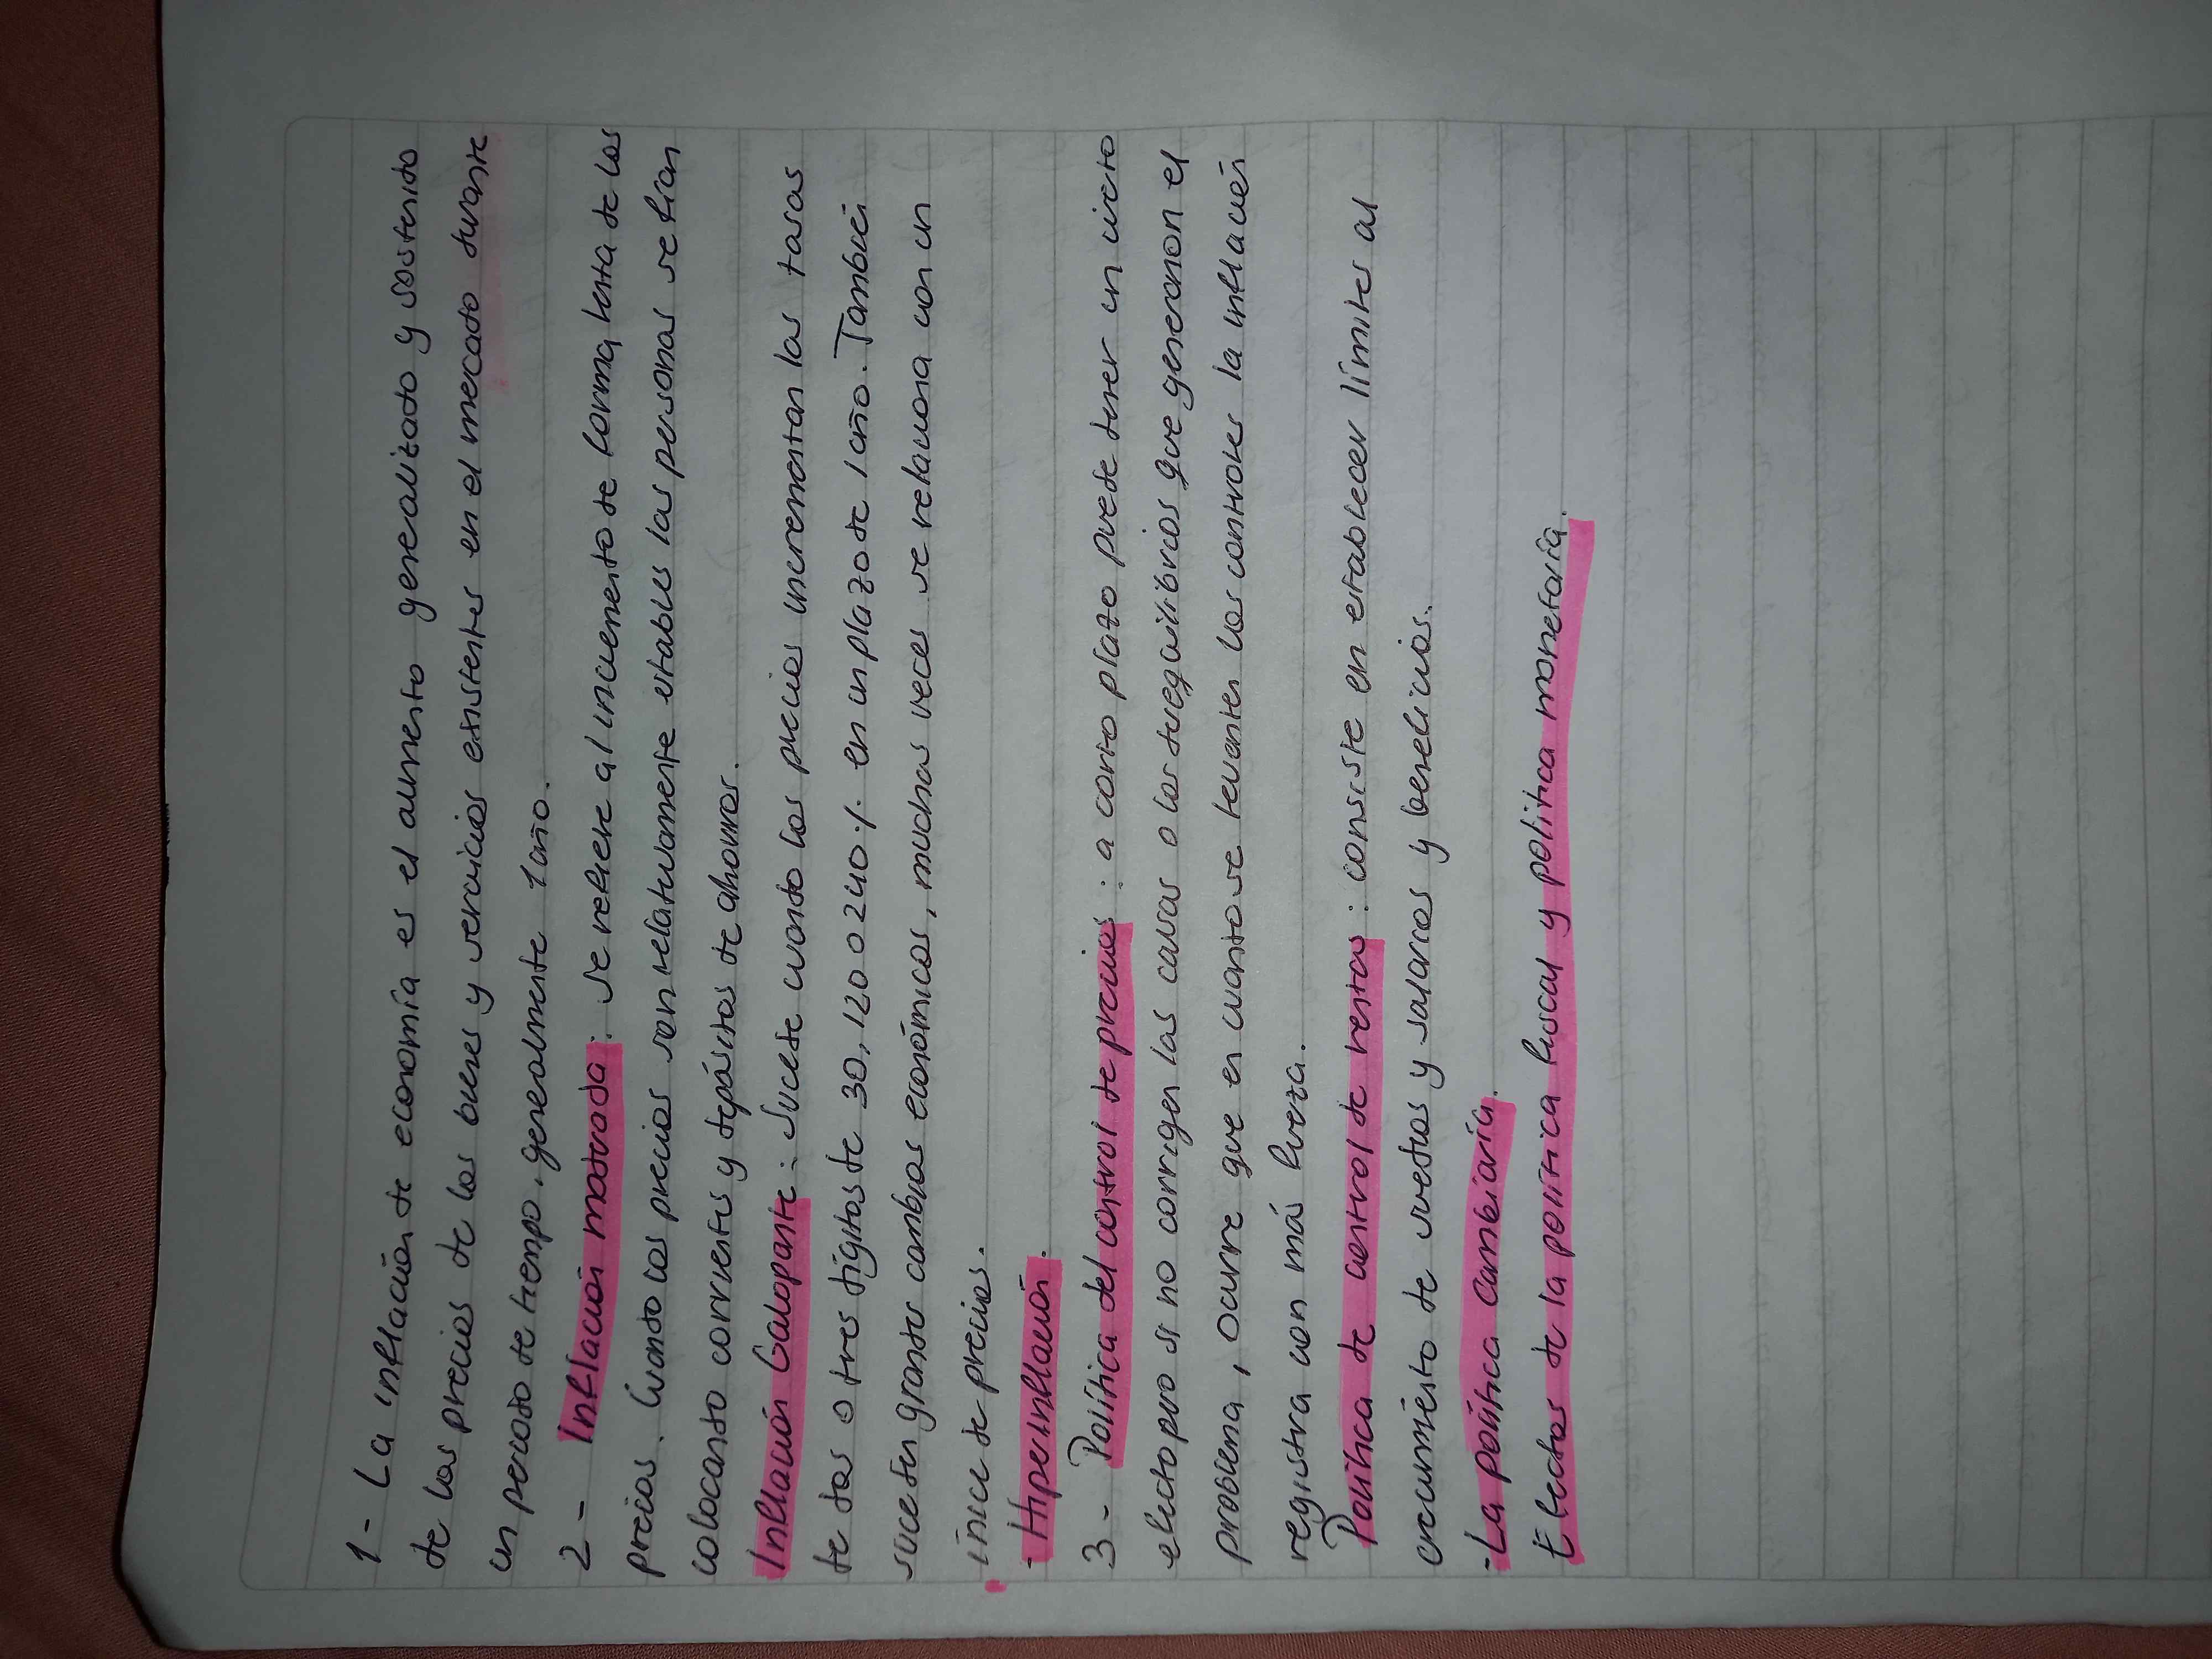 1- La inflación de economía es el aumento generalizado y sostenido
de los precios de los bienes y servicios existentes en el mercado durante
un periodo de tiempo, generalmente 1 año.
2- Inflación moderada: se refiere al incremento de forma lenta de los
precios. Cuando los precios son relativamente estables las personas se fían
colocando corrientes y depósitos de ahorros.
Inflación Galopante: Sucede cuando los precios incrementan las tasas
de dos o tres dígitos de 30, 120 o 240% en un plazo de 1 año. También
suceden grandes cambios económicos, muchas veces se relaciona con un
índice de precios.
- Hiperinflación.
3- Política del control de precios: a corto plazo puede tener un cierto
efecto pero si no corrigen las causas o los desequilibrios que generaron el
problema, ocurre que en cuanto se levanten los controles la inflación
registra con más fuerza.
Política de control de rentas: consiste en establecer límites al
crecimiento de sueldos y salarios y beneficios.
-La política cambiaría.
Efectos de la política fiscal y política monetaria.